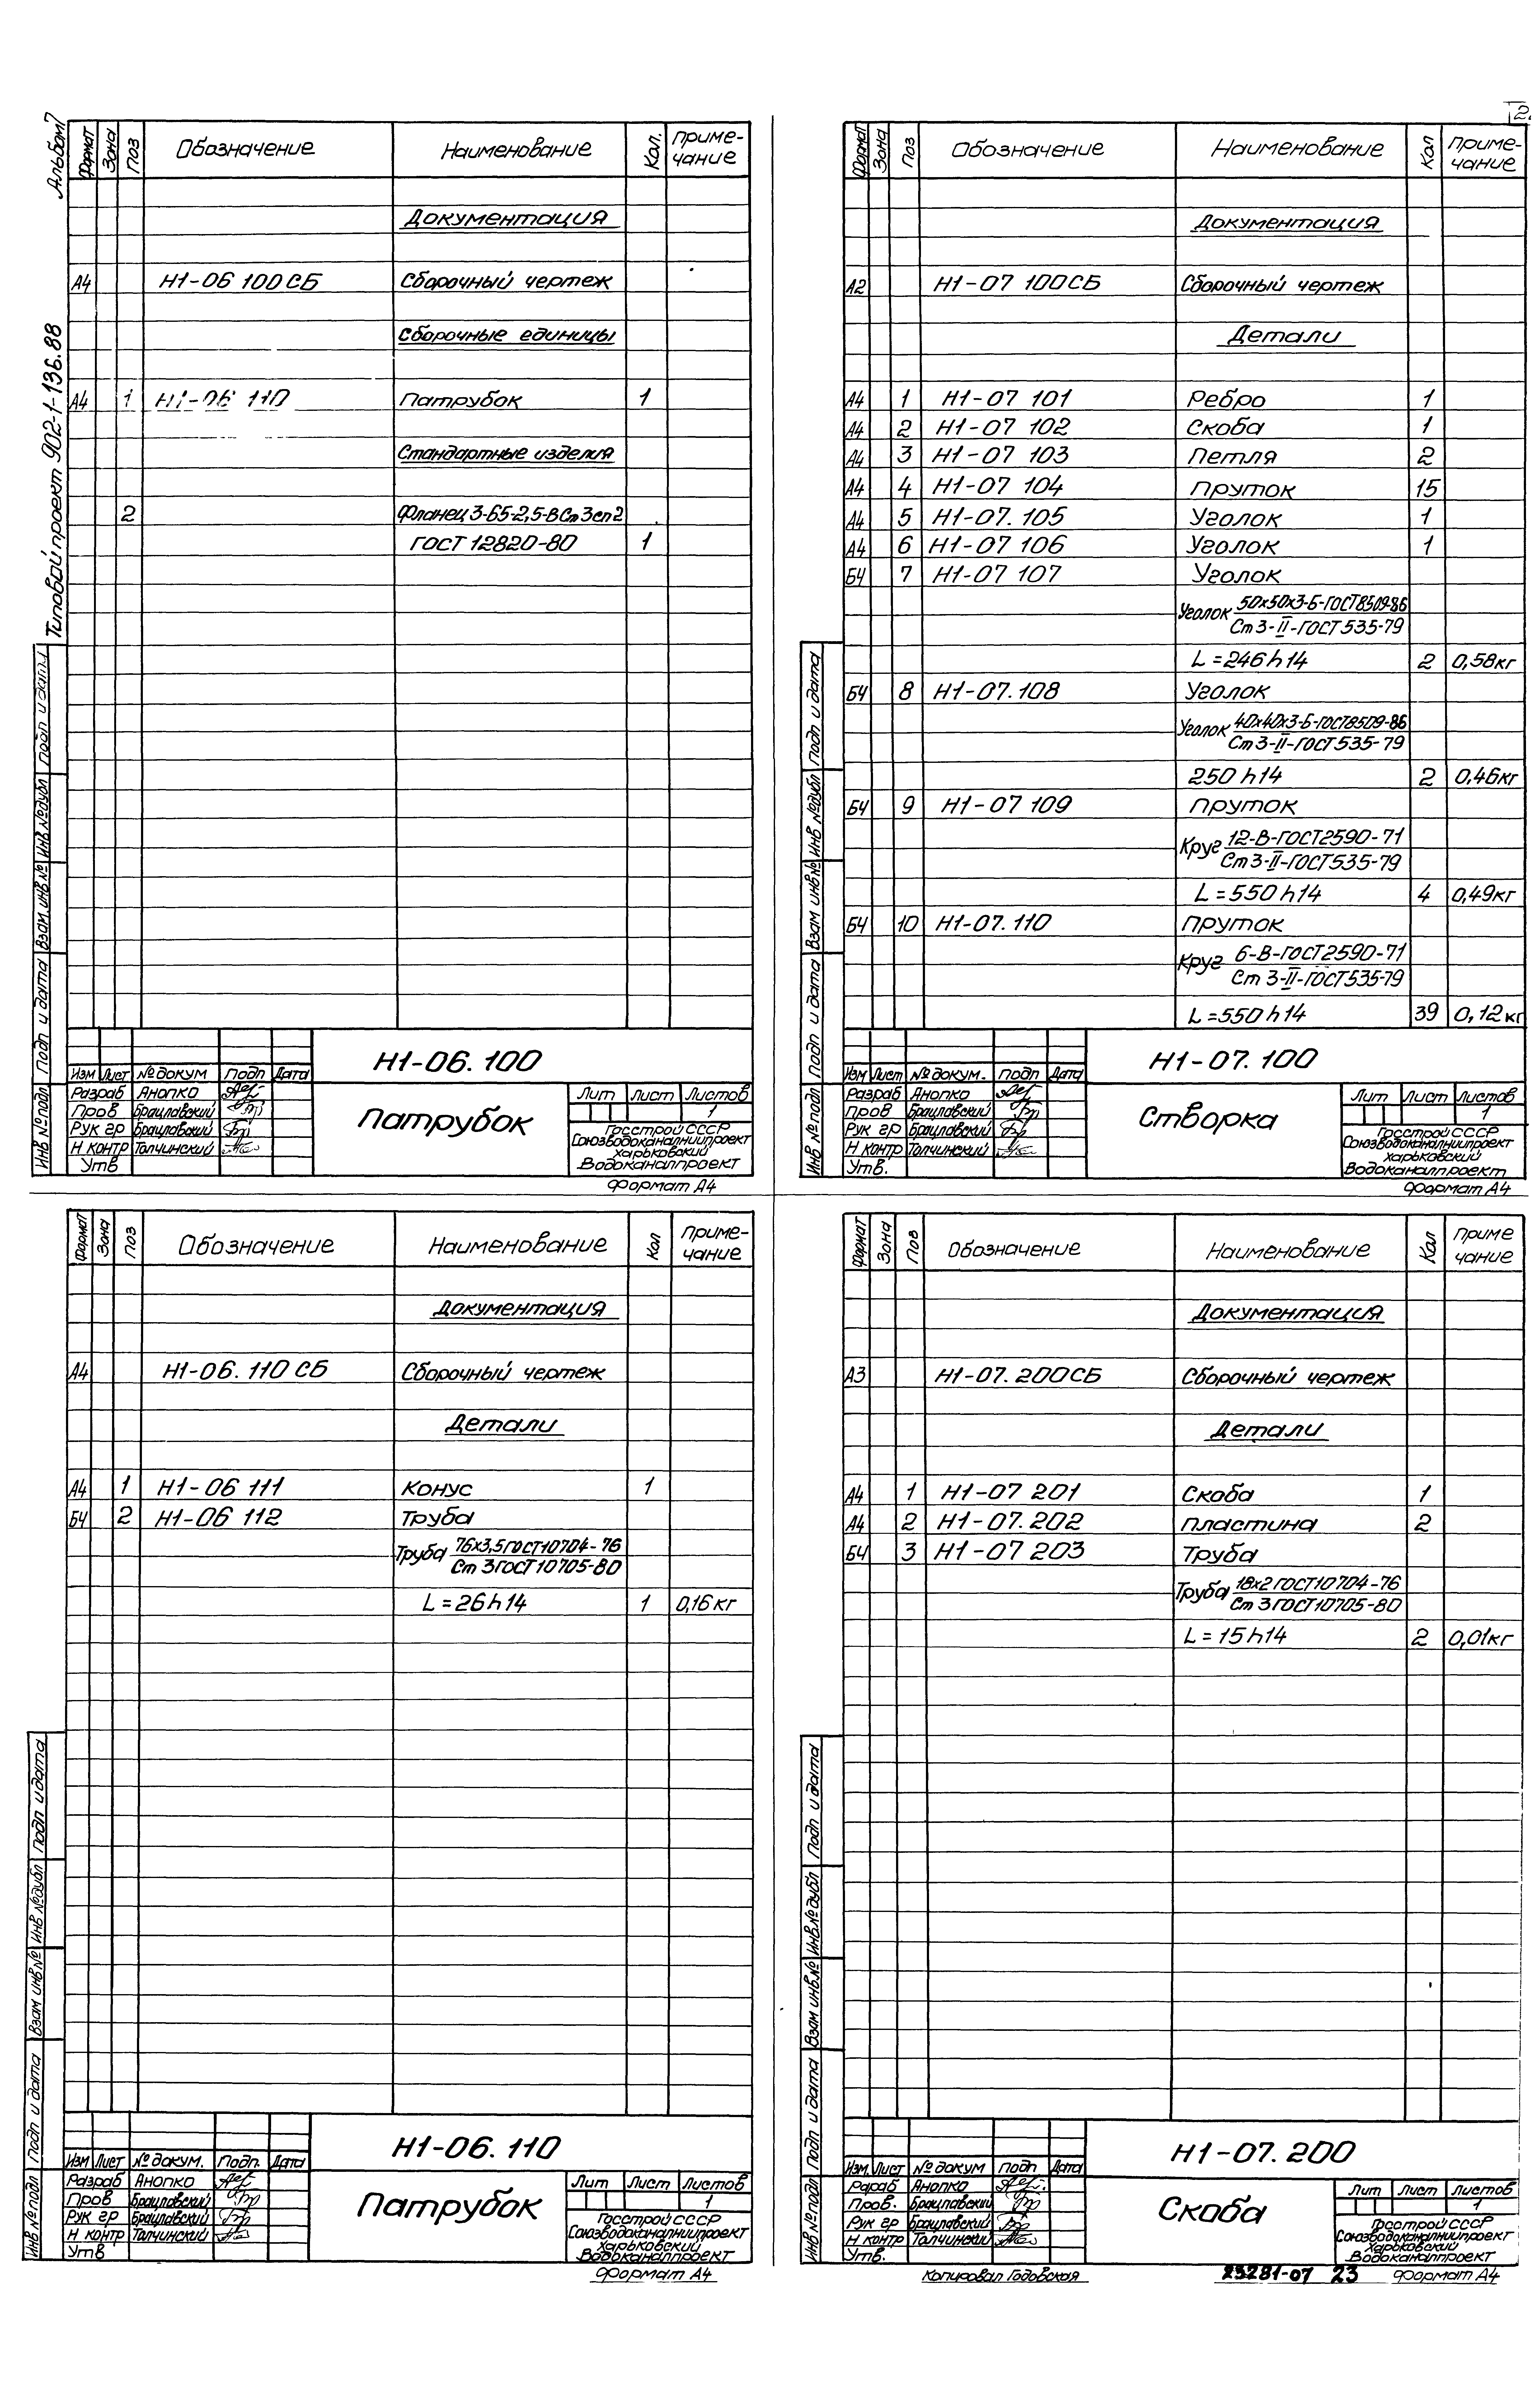 Альбом 7
Типовой проект 902-1-136.88
Формат Зона Поз Обозначение Наименование Кол. Приме-чание
Документация
А4 Н1-06 100 СБ Сборочный чертеж
Сборочные единицы
А4 1 Н1-06 110 Патрубок 1
Стандартные изделия
2 Фланец 3-65-2,5-В Ст 3 сп 2
ГОСТ 12820-80 1
Инв № подл Подп и дата Взам. инв № Инв № дубл Подп и дата
Н1-06.100
Изм Лист № докум Подп Дата
Разраб Анопко
Пров Брацлавский
Рук гр Брацлавский
Н контр Толчинский
Утв
Патрубок
Лит Лист Листов
1
Госстрой СССР
Союзводоканалниипроект
Харьковский
Водоканалпроект
Формат А4
Формат Зона Поз Обозначение Наименование Кол Приме-чание
Документация
А2 Н1-07 100СБ Сборочный чертеж
Детали
А4 1 Н1-07 101 Ребро 1
А4 2 Н1-07 102 Скоба 1
А4 3 Н1-07 103 Петля 2
А4 4 Н1-07 104 Пруток 15
А4 5 Н1-07.105 Уголок 1
А4 6 Н1-07 106 Уголок 1
БЧ 7 Н1-07 107 Уголок
Уголок 50х50х3-Б-ГОСТ8509-86
Ст 3-II-ГОСТ 535-79
L=246 h14 2 0,58кг
БЧ 8 Н1-07.108 Уголок
Уголок 40х40х3-Б-ГОСТ8509-86
Ст 3-II-ГОСТ 535-79
250 h14 2 0,46кг
БЧ 9 Н1-07 109 Пруток
Круг 12-В-ГОСТ2590-71
Ст 3-II-ГОСТ 535-79
L=550 h14 4 0,49кг
БЧ 10 Н1-07.110 Пруток
Круг 6-В-ГОСТ2590-71
Ст 3-II-ГОСТ535-79
L=550 h14 39 0,12кг
Инв № подл Подп и дата Взам инв № Инв № дубл Подп и дата
Н1-07.100
Изм Лист № докум. Подп Дата
Разраб Анопко
Пров Брацлавский
Рук гр Брацлавский
Н контр Толчинский
Утв.
Створка
Лит Лист Листов
1
Госстрой СССР
Союзводоканалниипроект
Харьковский
Водоканалпроект
Формат А4
Формат Зона Поз Обозначение Наименование Кол Приме-чание
Документация
А4 Н1-06.110 СБ Сборочный чертеж
Детали
А4 1 Н1-06 111 Конус 1
БЧ 2 Н1-06 112 Труба
Труба 76х3,5 ГОСТ10704-76
Ст 3 ГОСТ10705-80
L=26 h14 1 0,16 кг
Инв № подл Подп и дата Взам инв № Инв № дубл Подп и дата
Н1-06.110
Изм Лист № докум. Подп. Дата
Разраб Анопко
Пров Брацлавский
Рук гр Брацлавский
Н контр Толчинский
Утв
Патрубок
Лит Лист Листов
1
Госстрой СССР
Союзводоканалниипроект
Харьковский
Водоканалпроект
Формат А4
Формат Зона Поз Обозначение Наименование Кол Приме чание
Документация
А3 Н1-07.200СБ Сборочный чертеж
Детали
А4 1 Н1-07 201 Скоба 1
А4 2 Н1-07.202 Пластина 2
БЧ 3 Н1-07 203 Труба
Труба 18х2 ГОСТ10704-76
Ст 3 ГОСТ10705-80
L=15 h14 2 0,01кг
Инв № подл Подп и дата Взам инв № Инв № дубл Подп и дата
Н1-07.200
Изм. Лист № докум Подп Дата
Рараб Анопко
Пров. Брацлавский
Рук гр Брацлавский
Н контр Толчинский
Утв.
Скоба
Лит Лист Листов
1
Госстрой СССР
Союзводоканалниипроект
Харьковский
Водоканалпроект
Копировал Годовская 23281-07 23 Формат А4